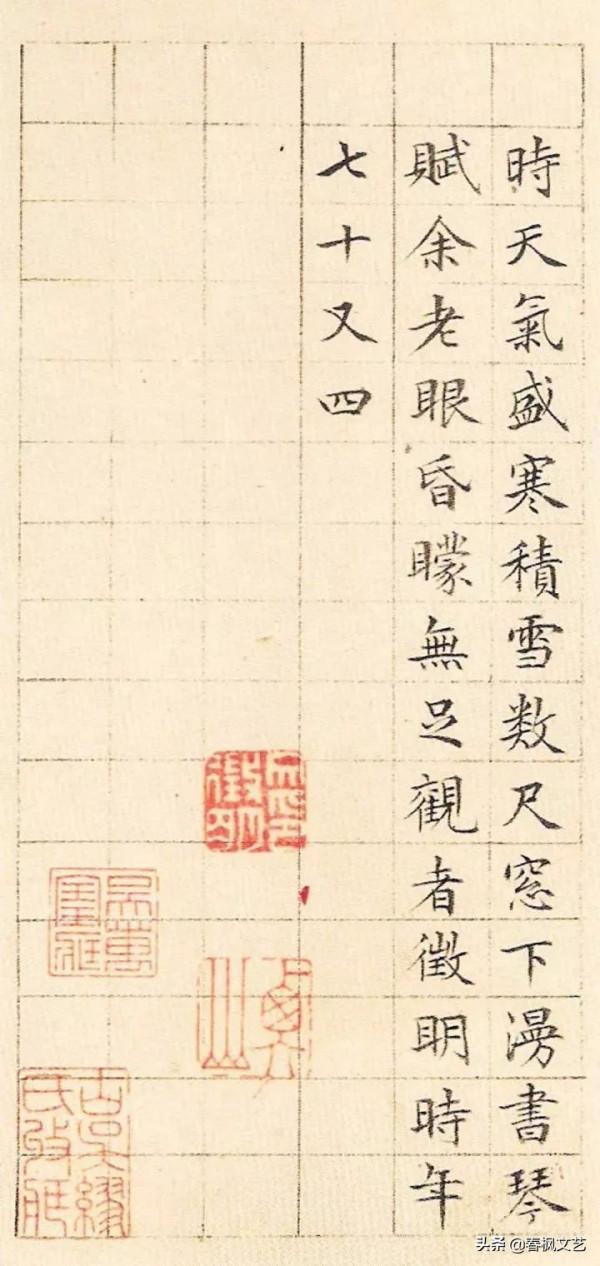 時天氣盛寒積雪数尺窓下漫書琴
賦余老眼昏矇無足觀者徴明時年
七十又四
頭条 @春枫文艺